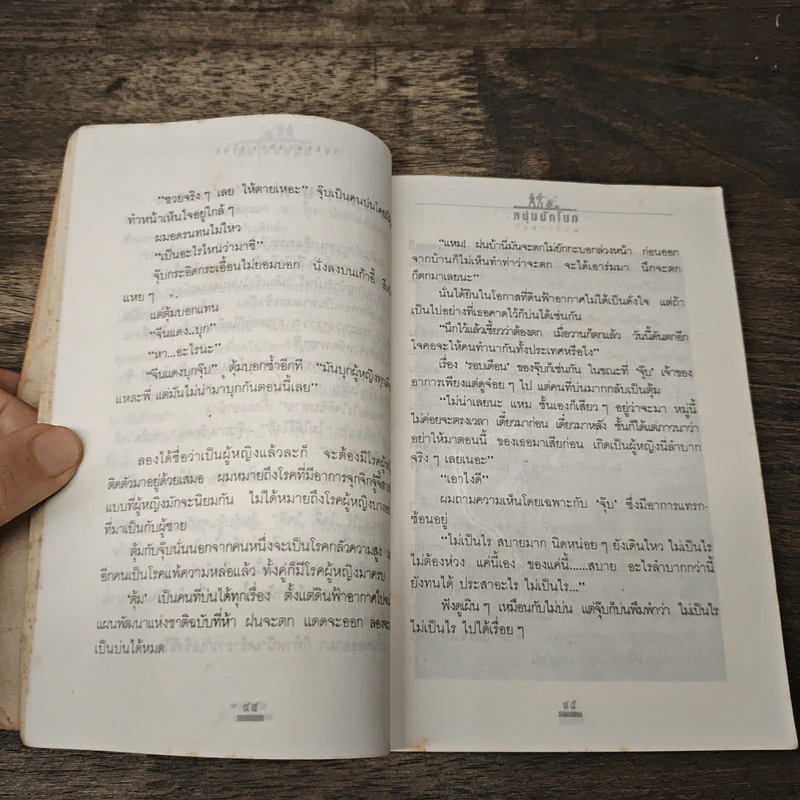 "ซวยจริง ๆ เลย ให้ตายเหอะ" จุ๊บเป็นคนบ่น
ทำหน้าเห็นใจอยู่ใกล้ ๆ
ผมอดรนทนไม่ไหว
"เป็นอะไรไหนว่ามาซิ"
จุ๊บกระอิดกระเอื้อนไม่ยอมบอก นั่งลงบนเก้าอี้
แหย ๆ
แต่ตุ้มบอกแทน
"จีนแดง..บุก"
"หา...อะไรนะ"
"จีนแดงบุกจุ๊บ" ตุ้มบอกซ้ำอีกที "มันบุกผู้หญิงทุก
แหละพี่ แต่มันไม่น่ามาบุกกันตอนนี้เลย"
ลองได้ชื่อว่าเป็นผู้หญิงแล้วละก็ จะต้องมีโรค
ติดตัวมาอยู่ด้วยเสมอ ผมหมายถึงโรคที่มีอาการจุกจิกจู้จี้
แบบที่ผู้หญิงมักจะนิยมกัน ไม่ได้หมายถึงโรคผู้หญิงบาง
ที่มาเป็นกับผู้ชาย
ตุ้มกับจุ๊บนั่นนอกจากคนหนึ่งจะเป็นโรคกลัวความสูง
อีกคนเป็นโรคแพ้ความหล่อแล้ว ทั้งคู่ก็มีโรคผู้หญิงมาครบ
'ตุ้ม' เป็นคนที่บ่นได้ทุกเรื่อง ตั้งแต่ดินฟ้าอากาศไป
แผนพัฒนาแห่งชาติฉบับที่ห้า ฝนจะตก แดดจะออก ลอง
เป็นบ่นได้หมด
๔๔
หนุ่มนักโบก
"แหม! ฝนบ้านี่มันจะตกไม่ยักทะบอกล่วงหน้า ก่อนออก
จากบ้านก็ไม่เห็นทำท่าว่าจะตก จะได้เอาร่มมา นึกจะตก
ก็ตกมาเลยนะ"
นั่นได้ยินในโอกาสที่ดินฟ้าอากาศไม่ได้เป็นดั่งใจ แต่ถ้า
เป็นไปอย่างที่เธอคาดไว้ก็บ่นได้เช่นกัน
"นึกไว้แล้วเชียวว่าต้องตก เมื่อวานก็ตกแล้ว วันนี้ดันตกอีก
ใจคอจะให้คนทำนากันทั้งประเทศหรือไง"
เรื่อง 'รอบเดือน' ของจุ๊บก็เช่นกัน ในขณะที่ 'จุ๊บ' เจ้าของ
อาการเพียงแต่ดูจ๋อย ๆ ไป แต่คนที่บ่นมากกลับเป็นตุ้ม
"ไม่น่าเลยนะ แหม ชั้นเองก็เสียว ๆ อยู่ว่าจะมา หมู่นี้
ไม่ค่อยจะตรงเวลา เดี๋ยวมาก่อน เดี๋ยวมาหลัง ชั้นก็ได้แต่ภาวนาว่า
อย่าให้มาตอนนี้ ของเธอมาเสียก่อน เกิดเป็นผู้หญิงนี่ลำบาก
จริง ๆ เลยเนอะ"
"เอาไงดี"
ผมถามความเห็นโดยเฉพาะกับ 'จุ๊บ' ซึ่งมีอาการแทรก-
ซ้อนอยู่
"ไม่เป็นไร สบายมาก นิดหน่อย ๆ ยังเดินไหว ไม่เป็นไร
ไม่ต้องห่วง แค่นี้เอง ของแค่นี้......สบาย อะไรลำบากกว่านี้
ยังทนได้ ประสาอะไร ไม่เป็นไร..."
ฟังดูเผิน ๆ เหมือนกับไม่บ่น แต่จุ๊บก็บ่นพึมพำว่า ไม่เป็นไร
ไม่เป็นไร ไปได้เรื่อย ๆ
๔๕